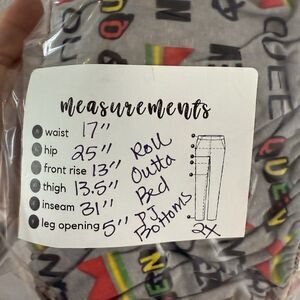 measurements
waist 17"
hip 25"
front rise 13"
thigh 13.5"
inseam 31"
leg opening 5"
Roll
Outta
Bed
PJ
Bottoms
2X
QUEEN
QUEEN